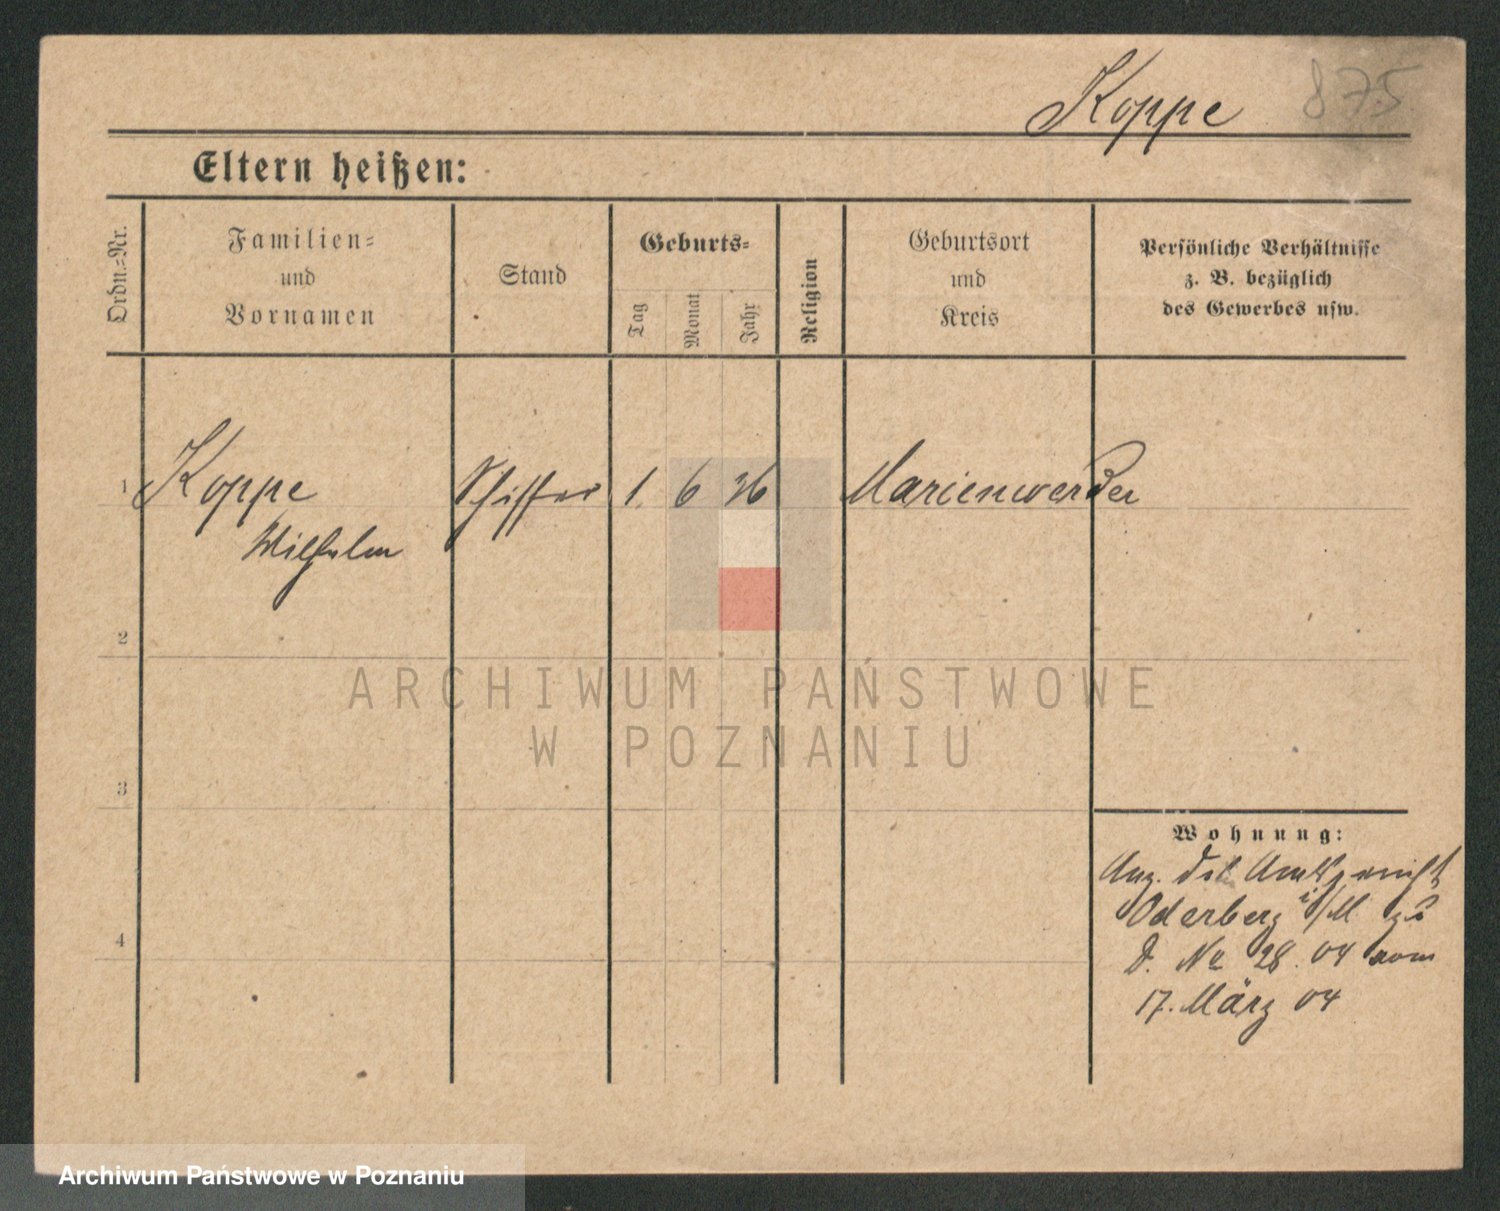 Koppe 875
Eltern heißen:
Ordn.-Nr.
Familien-
und
Vornamen
Stand
Geburts-
Tag
Monat
Jahr
Religion
Geburtsort
und
Kreis
Persönliche Verhältnisse
z. B. bezüglich
des Gewerbes usw.
1 Koppe Schiffer 1. 6 36 Marienwerder
Wilhelm
2
ARCHIWUM PAŃSTWOWE
W POZNANIU
3
Wohnung:
Anz. des Amtsgericht
Oderberg i/M zu
4
D. No 28. 04 vom
17. März 04
Archiwum Państwowe w Poznaniu